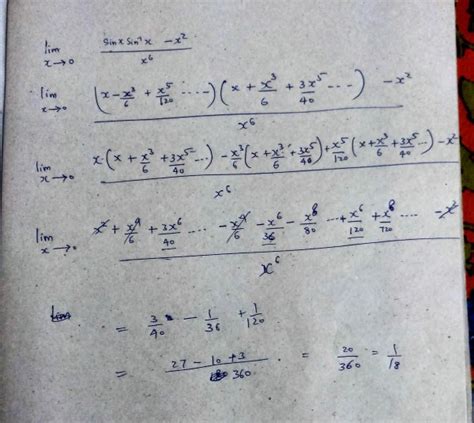 lim x→0 (sinx sin⁻¹x − x²)/x⁶
lim x→0 ((x − x³/6 + x⁵/120 ....)(x + x³/6 + 3x⁵/40 ...) − x²)/x⁶
lim x→0 (x·(x + x³/6 + 3x⁵/40 ...) − x³/6(x + x³/6 + 3x⁵/40) + x⁵/120(x + x³/6 + 3x⁵/40 ...) − x²)/x⁶
lim x→0 (x² + x⁴/6 + 3x⁶/40 ... − x⁴/6 − x⁶/36 − x⁸/80 ... + x⁶/120 + x⁸/720 .... − x²)/x⁶
= 3/40 − 1/36 + 1/120
= (27 − 10 + 3)/360 = 20/360 = 1/18